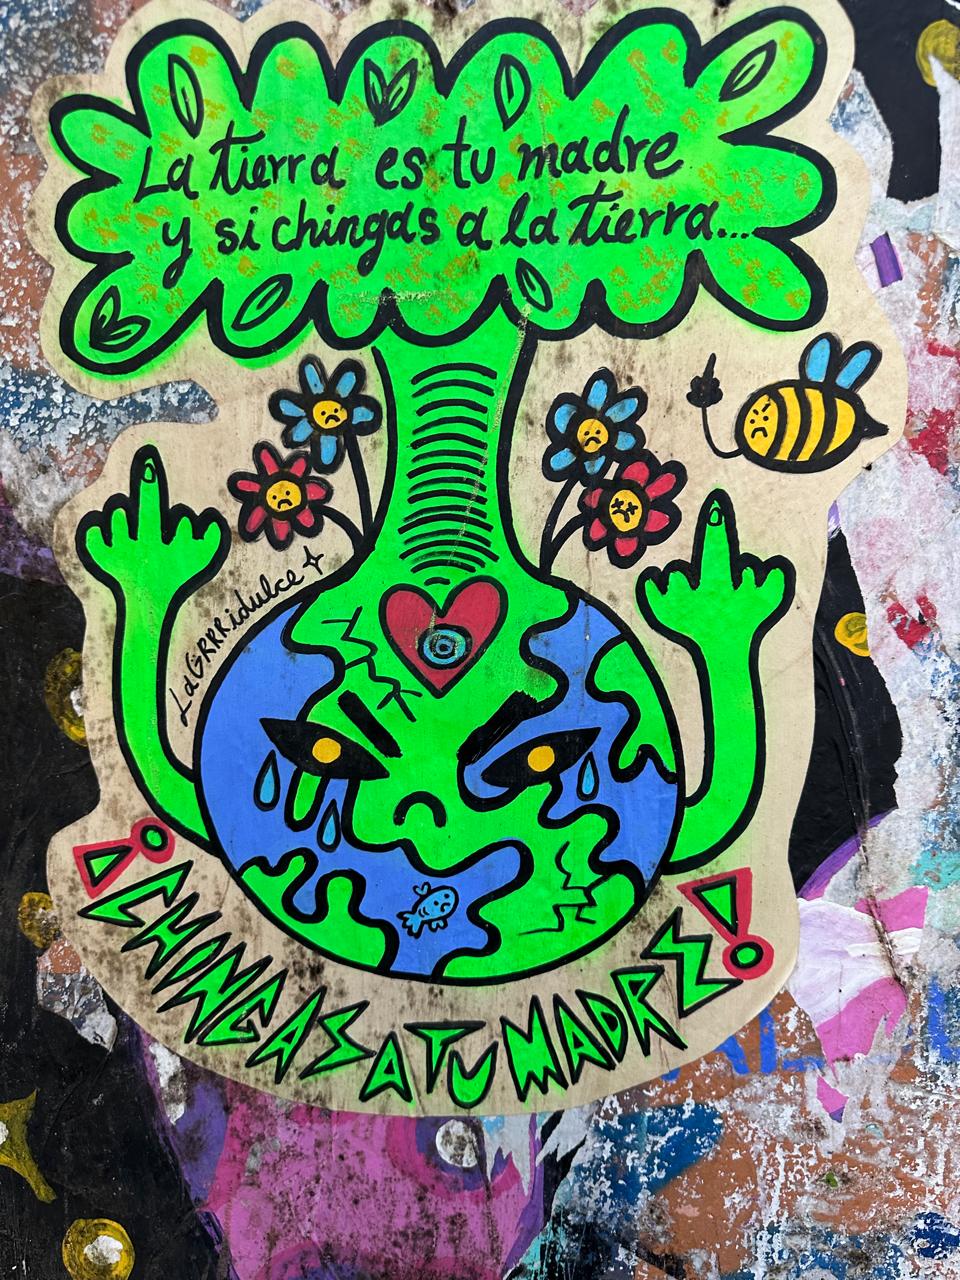 La tierra es tu madre
y si chingas a la tierra...
LaGRRRidulce
¡CHINGAS A TU MADRE!